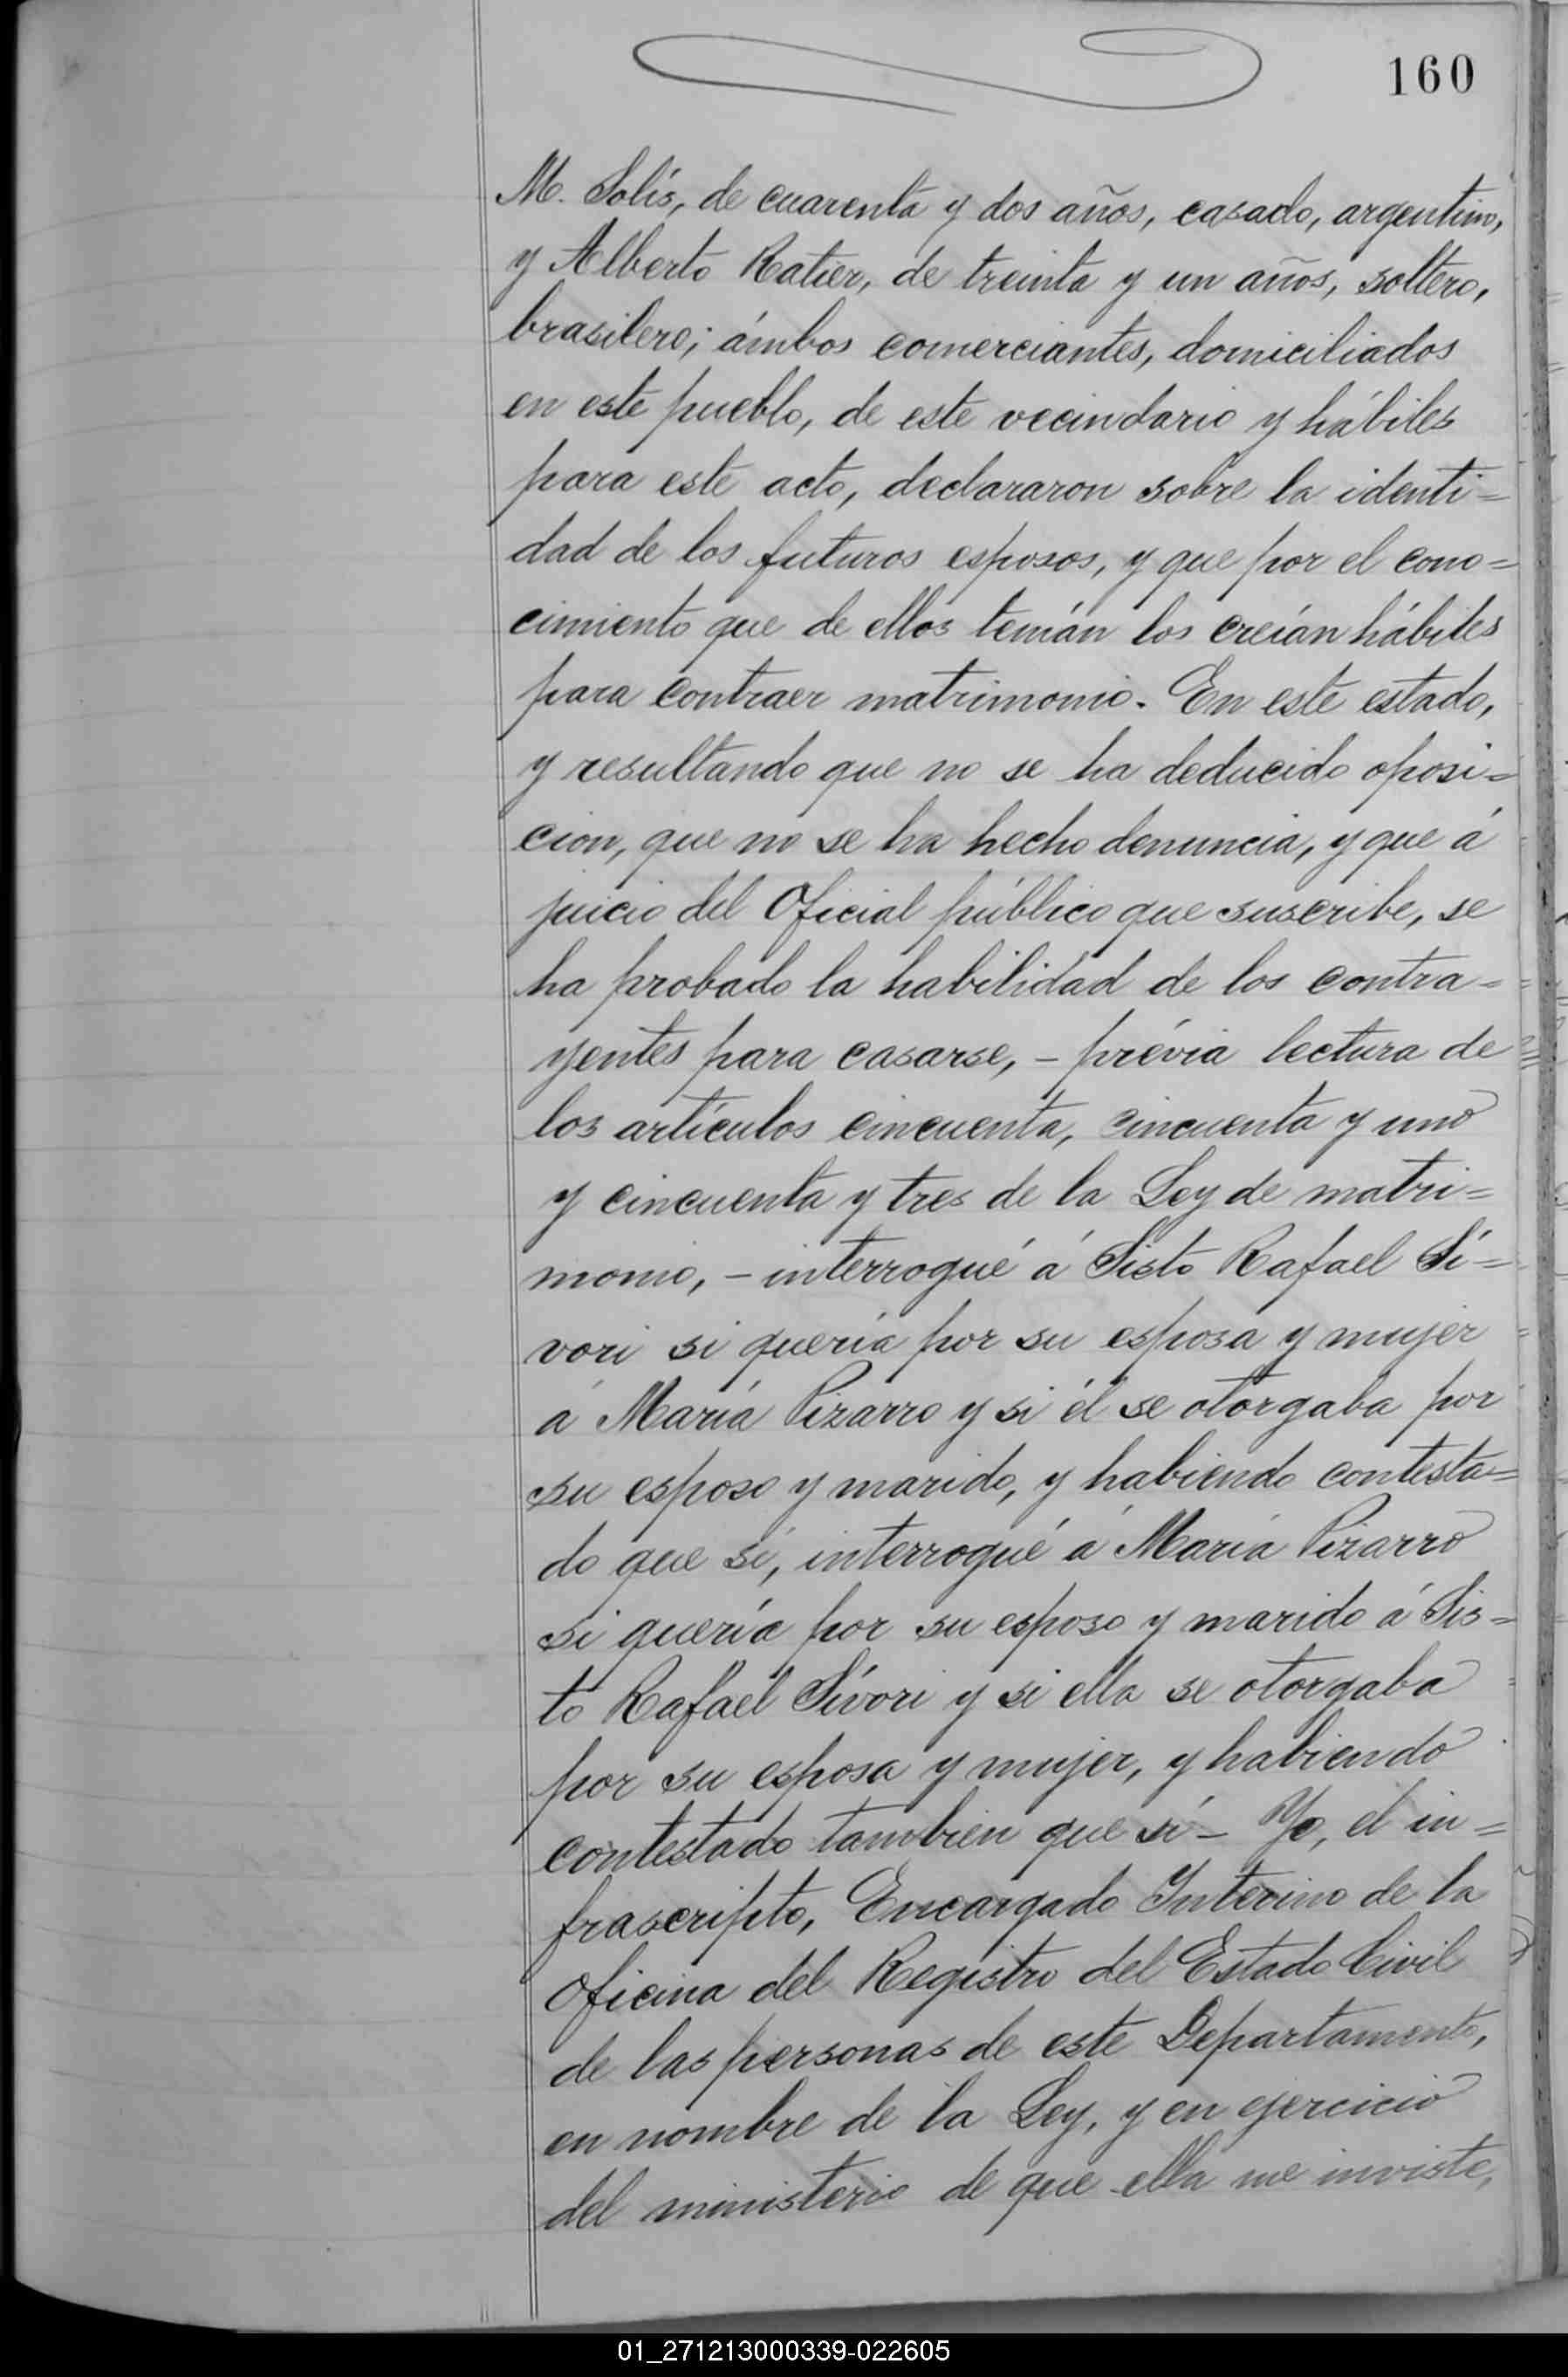 160
M. Solís, de cuarenta y dos años, casado, argentino,
y Alberto Ratier, de treinta y un años, soltero,
brasilero; ámbos comerciantes, domiciliados
en este pueblo, de este vecindario y hábiles
para este acto, declararon sobre la identi=
dad de los futuros esposos, y que por el cono=
cimiento que de ellos tenían los creían hábiles
para contraer matrimonio. En este estado,
y resultando que no se ha deducido oposi=
cion, que no se ha hecho denuncia, y que á
juicio del Oficial público que suscribe, se
ha probado la habilidad de los contra=
yentes para casarse, - prévia lectura de
los artículos cincuenta, cincuenta y uno
y cincuenta y tres de la Ley de matri=
monio, - interrogué á Sisto Rafael Sí=
vori si quería por su esposa y mujer
á María Pizarro y si él se otorgaba por
su esposo y marido, y habiendo contesta=
do que sí, interrogué á María Pizarro
si quería por su esposo y marido á Sis=
to Rafael Sívori y si ella se otorgaba
por su esposa y mujer, y habiendo
contestado tambien que sí - Yo, el in=
frascripto, Encargado Interino de la
Oficina del Registro del Estado Civil
de las personas de este Departamento,
en nombre de la Ley, y en ejercicio
del ministerio de que ella me inviste,
01_271213000339-022605